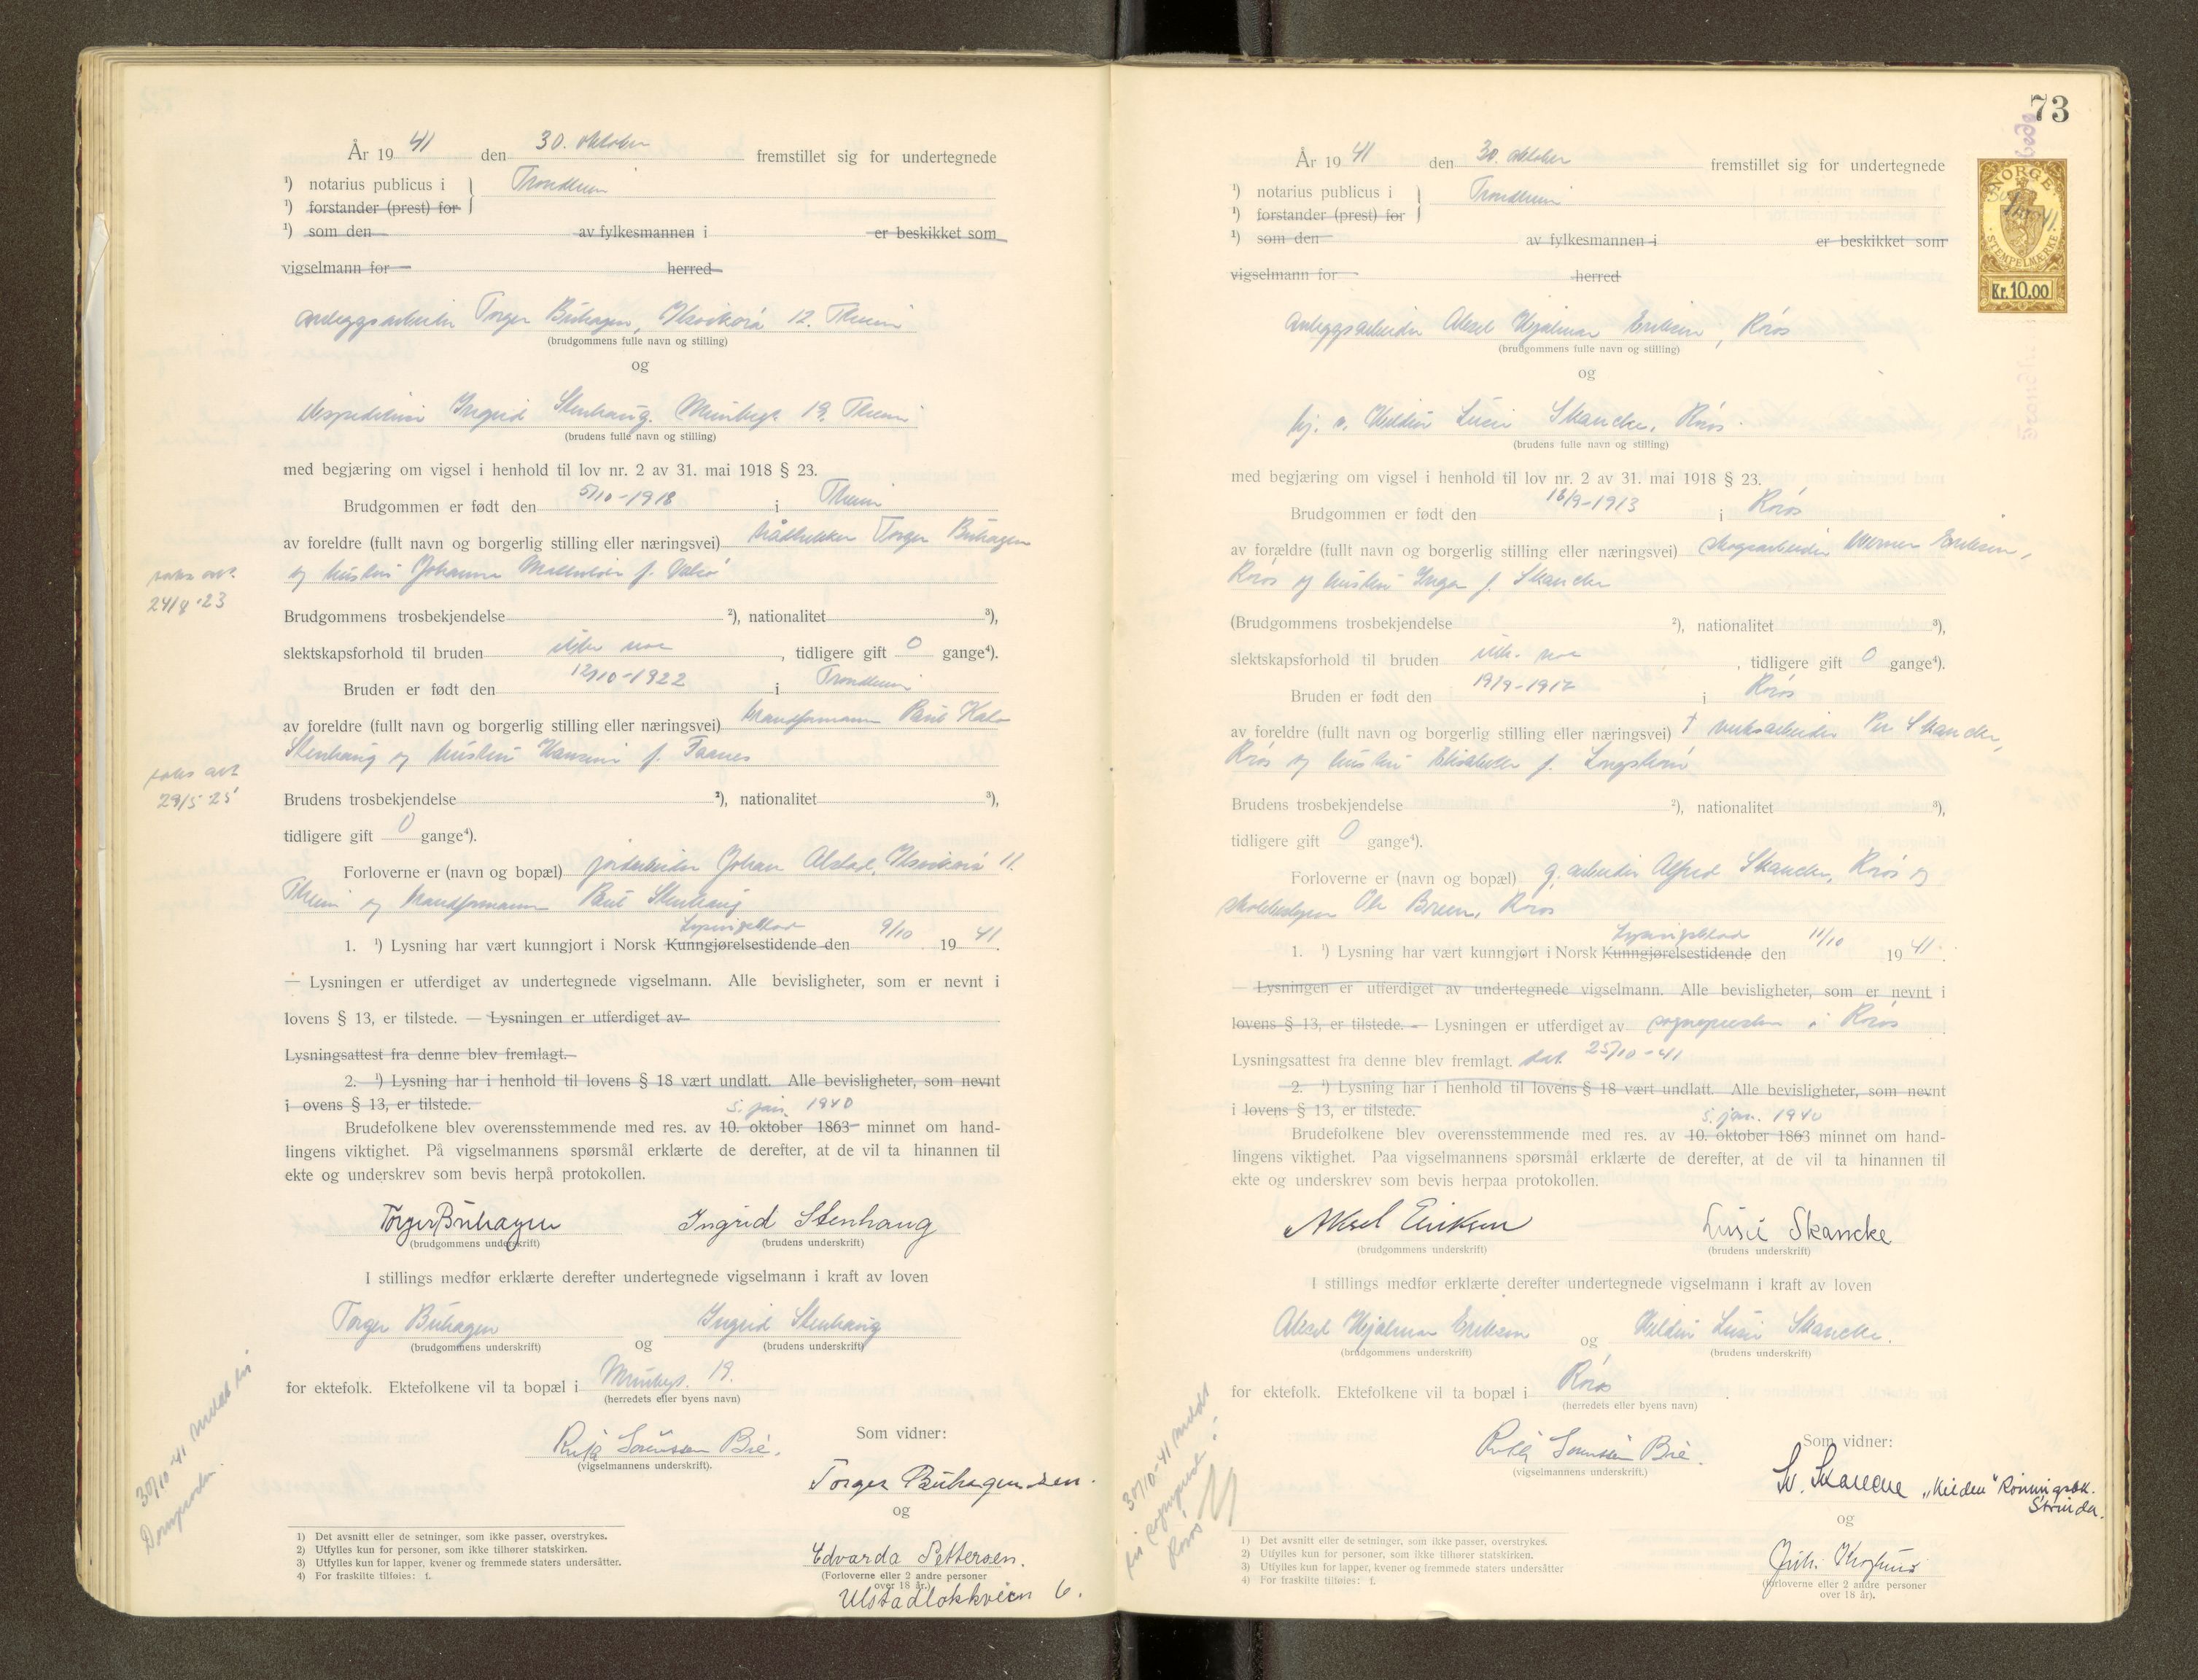 År 19 41 den 30. oktober fremstillet sig for undertegnede
¹) notarius publicus i Trondheim
¹) forstander (prest) for
¹) som den av fylkesmannen i er beskikket som
vigselmann for herred
Anleggsarbeider Torger Buhagen, Ilsvikøra 12. Trheim
(brudgommens fulle navn og stilling)
og
Ekspeditrise Ingrid Stenhaug. 19. Trheim
(brudens fulle navn og stilling)
med begjæring om vigsel i henhold til lov nr. 2 av 31. mai 1918 § 23.
Brudgommen er født den 5/10-1918 i Trheim
av foreldre (fullt navn og borgerlig stilling eller næringsvei) Torger Buhagen
og hustru Johanna f. Valsø
saks att.
Brudgommens trosbekjendelse ²), nationalitet ³),
slektskapsforhold til bruden ikke noe, tidligere gift 0 gange⁴).
Bruden er født den 12/10-1922 i Trondheim
av foreldre (fullt navn og borgerlig stilling eller næringsvei) brandformann Paul
Stenhaug og hustru f. Faanes
29/5 25
Brudens trosbekjendelse ²), nationalitet ³),
tidligere gift 0 gange⁴).
Forloverne er (navn og bopæl) jordarbeider Johan Alstad, Ilsvikøra 11.
Trheim og brandformann Paul Stenhaug
Lysingsblad
1. ¹) Lysning har vært kunngjort i Norsk Kunngjørelsestidende den 9/10 19 41.
— Lysningen er utferdiget av undertegnede vigselmann. Alle bevisligheter, som er nevnt i
lovens § 13, er tilstede. — Lysningen er utferdiget av
Lysningsattest fra denne blev fremlagt.
2. ¹) Lysning har i henhold til lovens § 18 vært undlatt. Alle bevisligheter, som nevnt
i ovens § 13, er tilstede.
5. jan. 1940
Brudefolkene blev overensstemmende med res. av 10. oktober 1863 minnet om hand-
lingens viktighet. På vigselmannens spørsmål erklærte de derefter, at de vil ta hinannen til
ekte og underskrev som bevis herpå protokollen.
Torger Buhagen Ingrid Stenhaug
(brudgommens underskrift) (brudens underskrift)
I stillings medfør erklærte derefter undertegnede vigselmann i kraft av loven
Torger Buhagen og Ingrid Stenhaug
(brudgommens underskrift) (brudens underskrift)
for ektefolk. Ektefolkene vil ta bopæl i 19.
(herredets eller byens navn)
30/10-41 meldt til
Domprosten.
Som vidner:
Sørenssen Bie.
(vigselmannens underskrift).
Torger Buhagen sen.
og
Edvarda Pettersen.
(Forloverne eller 2 andre personer
over 18 år.)
Ulstadløkkveien 6.
1) Det avsnitt eller de setninger, som ikke passer, overstrykes.
2) Utfylles kun for personer, som ikke tilhører statskirken.
3) Utfylles kun for lapper, kvener og fremmede staters undersåtter.
4) For fraskilte tilføies: f.
73
NORGE
STEMPELMÆRKE
Kr. 10.00
År 19 41 den 30. oktober fremstillet sig for undertegnede
¹) notarius publicus i Trondheim
¹) forstander (prest) for
¹) som den av fylkesmannen i er beskikket som
vigselmann for herred
Anleggsarbeider Aksel Hjalmar Eriksen, Røros
(brudgommens fulle navn og stilling)
og
hj. v. Heldine Lusie Skancke, Røros.
(brudens fulle navn og stilling)
med begjæring om vigsel i henhold til lov nr. 2 av 31. mai 1918 § 23.
Brudgommen er født den 16/9-1913 i Røros
av forældre (fullt navn og borgerlig stilling eller næringsvei) skogsarbeider Werner Eriksen,
Røros og hustru Inga f. Skancke
(Brudgommens trosbekjendelse ²), nationalitet ³),
slektskapsforhold til bruden ikke noe, tidligere gift 0 gange⁴).
Bruden er født den 19/9-1917 i Røros
av foreldre (fullt navn og borgerlig stilling eller næringsvei) † verksarbeider Per Skancke,
Røros og hustru Elisabeth f. Engstrøm
Brudens trosbekjendelse ²), nationalitet ³),
tidligere gift 0 gange⁴).
Forloverne er (navn og bopæl) g. arbeider Alfred Skancke, Røros og
skolebestyrer Ole Breen, Røros
Lysingsblad
1. ¹) Lysning har vært kunngjort i Norsk Kunngjørelsestidende den 11/10 19 41.
— Lysningen er utferdiget av undertegnede vigselmann. Alle bevisligheter, som er nevnt i
lovens § 13, er tilstede. — Lysningen er utferdiget av sognepresten i Røros
Lysningsattest fra denne blev fremlagt. dat. 25/10-41
2. ¹) Lysning har i henhold til lovens § 18 vært undlatt. Alle bevisligheter, som nevnt
i lovens § 13, er tilstede.
5. jan. 1940
Brudefolkene blev overensstemmende med res. av 10. oktober 1863 minnet om hand-
lingens viktighet. Paa vigselmannens spørsmål erklærte de derefter, at de vil ta hinannen til
ekte og underskrev som bevis herpaa protokollen.
Aksel Eriksen Lusie Skancke
(brudgommens underskrift) (brudens underskrift)
I stillings medfør erklærte derefter undertegnede vigselmann i kraft av loven
Aksel Hjalmar Eriksen og Heldine Lusie Skancke.
(brudgommens underskrift) (brudens underskrift)
for ektefolk. Ektefolkene vil ta bopæl i Røros.
(herredets eller byens navn)
30/10-41 meldt
til sognepresten i
Røros
Som vidner:
Sørenssen Bie.
(vigselmannens underskrift.)
Skancke Strinda.
og
(forloverne eller 2 andre personer
over 18 år).
1) Det avsnitt eller de setninger, som ikke passer, overstrykes.
2) Utfylles kun for personer, som ikke tilhører statskirken.
3) Utfylles kun for lapper, kvener og fremmede staters undersåtter
4) For fraskilte tilføies: f.